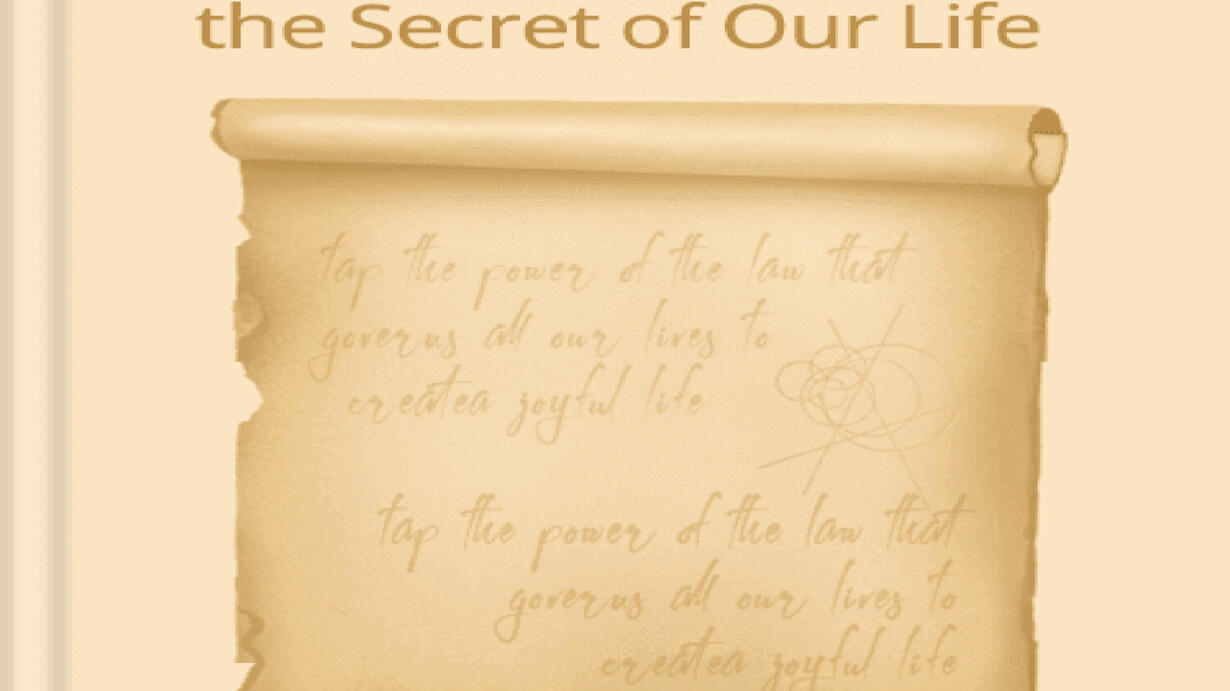 the Secret of Our Life
tap the power of the law that
governs all our lives to
createa joyful life
tap the power of the law that
governs all our lives to
createa joyful life